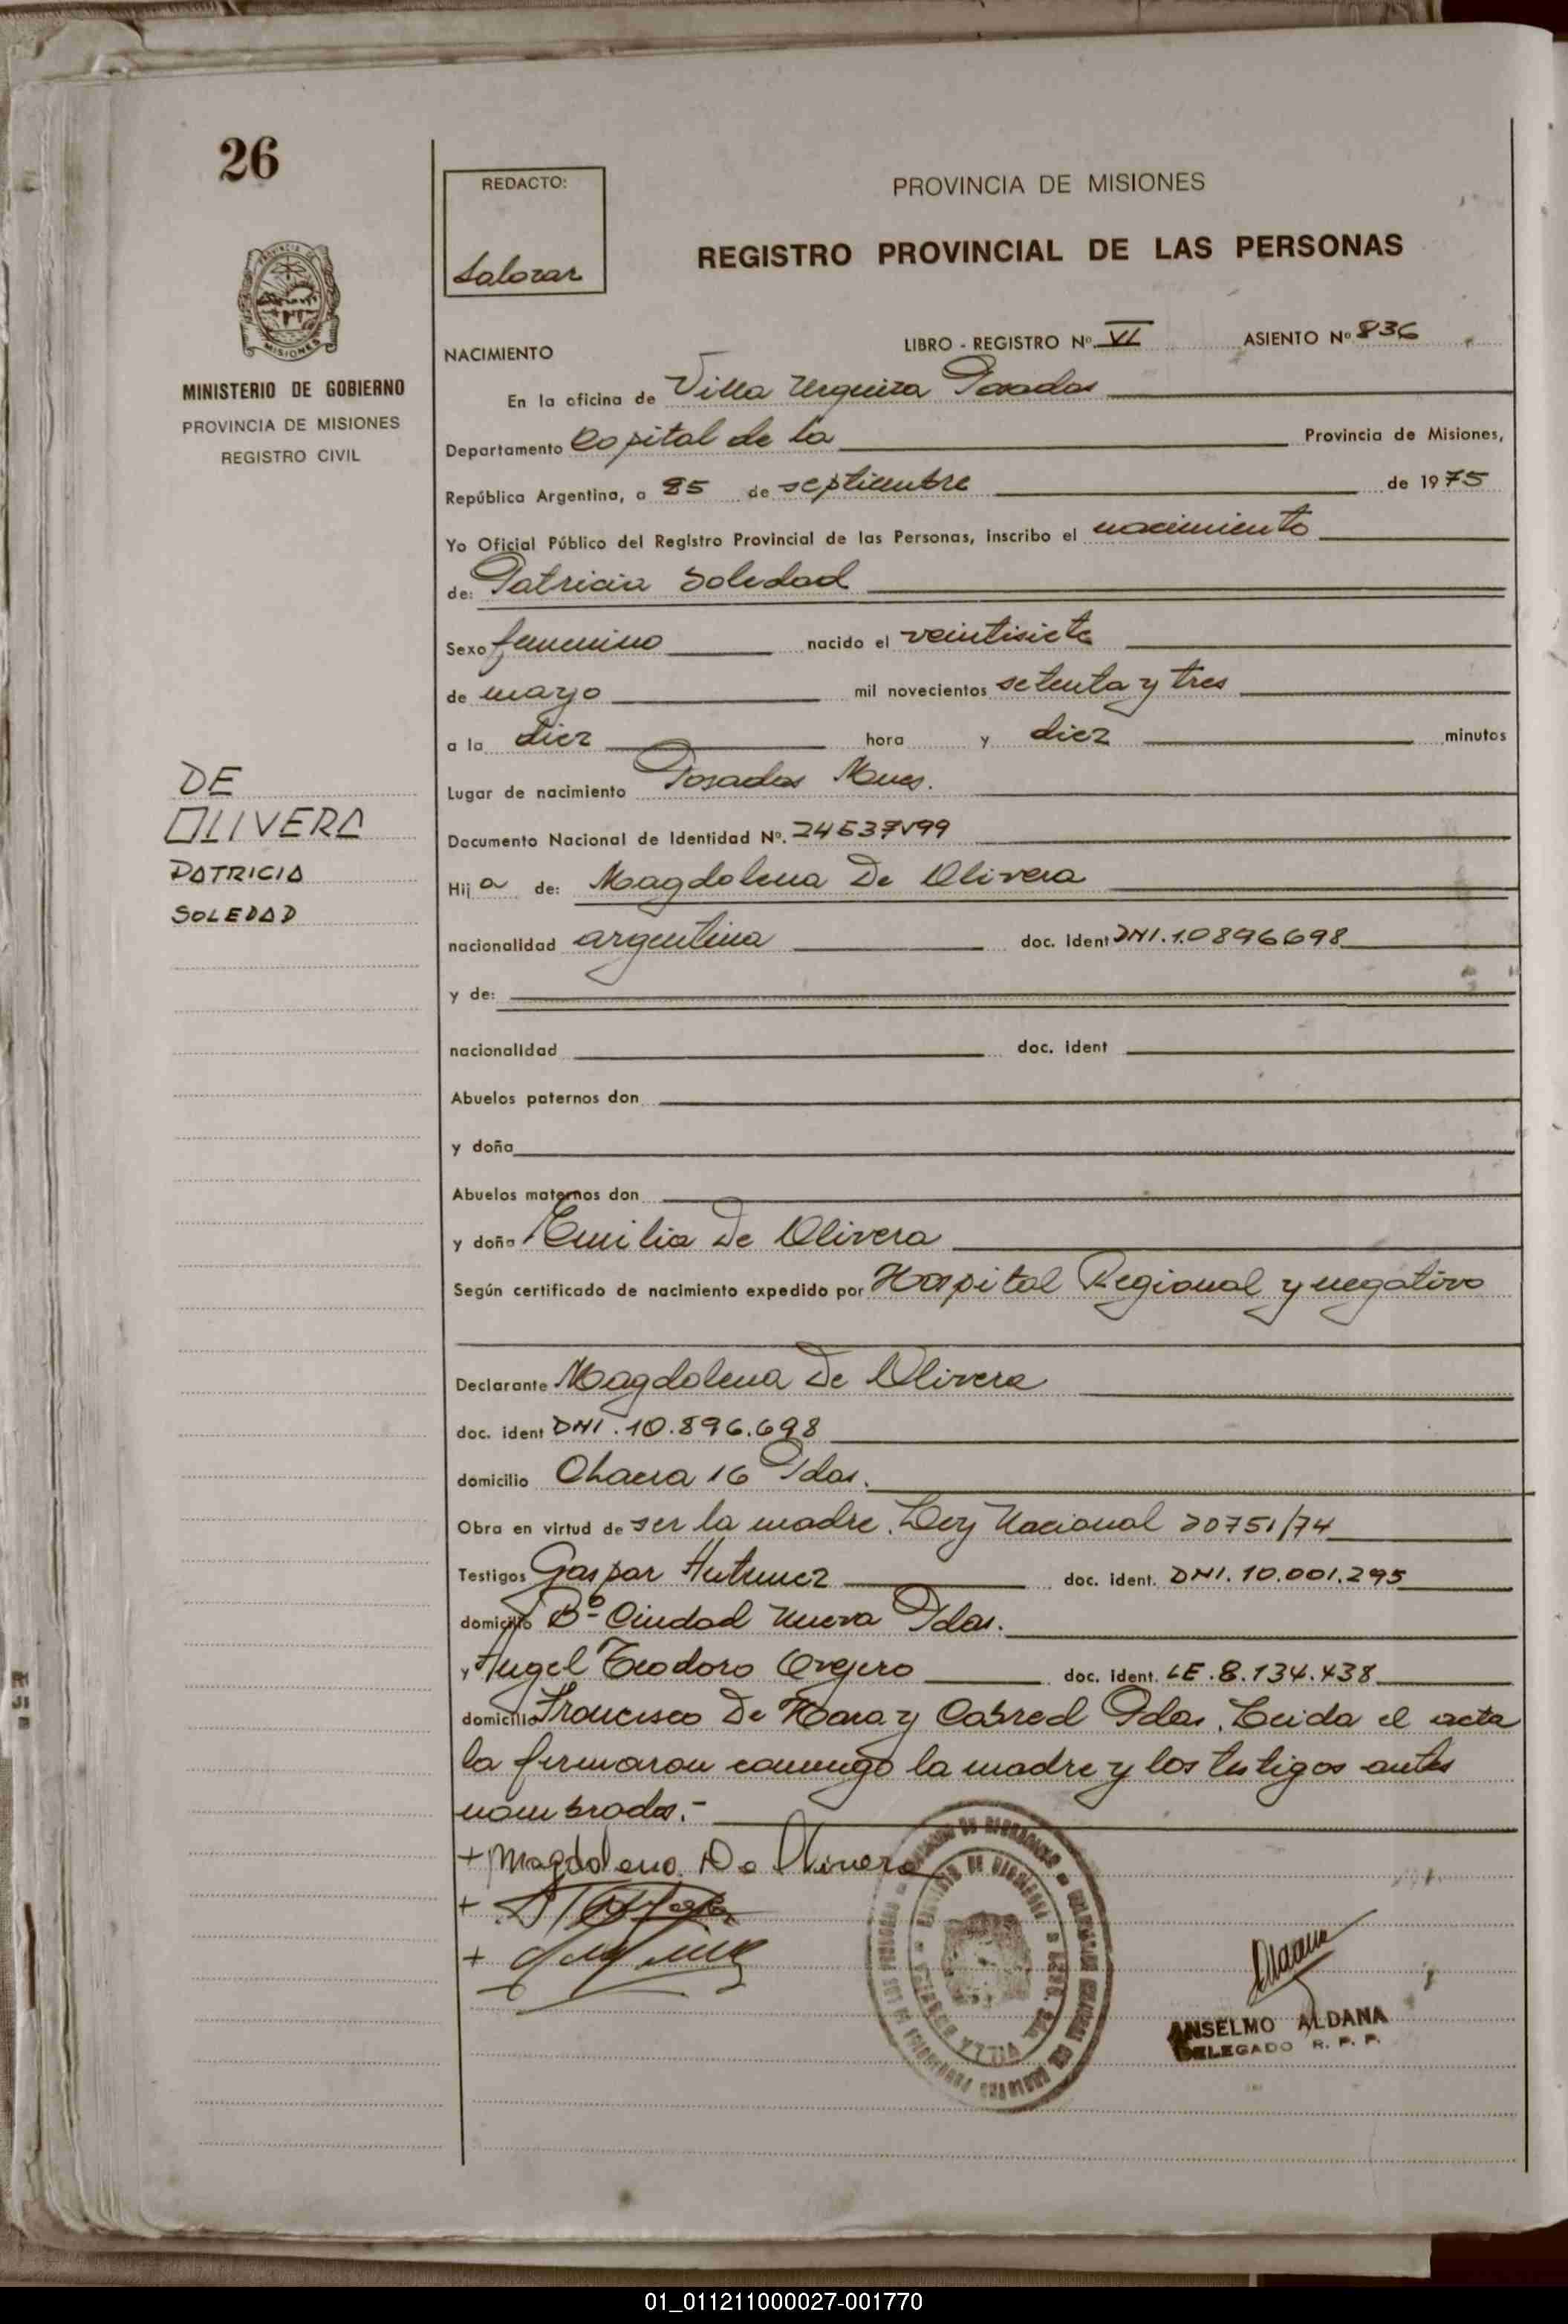 26
REDACTO:
Salazar
PROVINCIA DE MISIONES
REGISTRO PROVINCIAL DE LAS PERSONAS
MISIONES
MINISTERIO DE GOBIERNO
PROVINCIA DE MISIONES
REGISTRO CIVIL
NACIMIENTO LIBRO - REGISTRO Nº VI ASIENTO Nº 836
En la oficina de Villa Urquiza Posadas
Departamento Capital de la Provincia de Misiones,
República Argentina, a 25 de septiembre de 1975
Yo Oficial Público del Registro Provincial de las Personas, inscribo el nacimiento
de: Patricia Soledad
Sexo femenino nacido el veintisiete
de mayo mil novecientos setenta y tres
a la diez hora y diez minutos
Lugar de nacimiento Posadas Mnes.
DE
OLIVERA
PATRICIA
SOLEDAD
Documento Nacional de Identidad Nº.
Hija de: Magdalena De Olivera
nacionalidad argentina doc. ident DNI.10896698
y de:
nacionalidad doc. ident
Abuelos paternos don
y doña
Abuelos maternos don
y doña Emilia De Olivera
Según certificado de nacimiento expedido por Hospital Regional y negativo
Declarante Magdalena De Olivera
doc. ident DNI.10.896.698
domicilio Chacra 16 Pdas.
Obra en virtud de ser la madre. Ley Nacional 20751/74
Testigos Gaspar Antunez doc. ident. DNI.10.001.295
domicilio Bº Ciudad Nueva Pdas.
y Angel Teodoro Ovejero doc. ident. LE.8.134.438
domicilio Francisco De Haro y Cabred Pdas. Leida el acta
la firmaron conmigo la madre y los testigos antes
nombrados.-
+ Magdalena De Olivera
+
+
ANSELMO ALDANA
DELEGADO R. P. P.
01_011211000027-001770